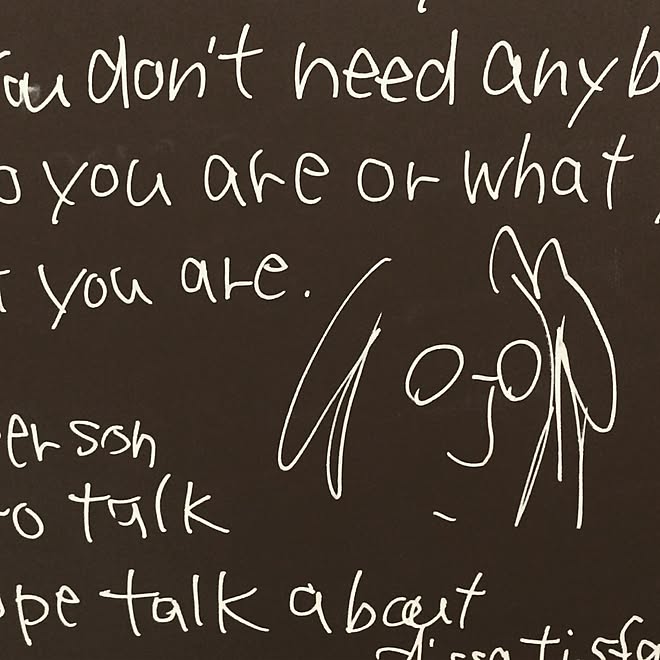 You don't need anyb
o you are or what
t you are.
erson
to talk
ope talk about
dissatisfa